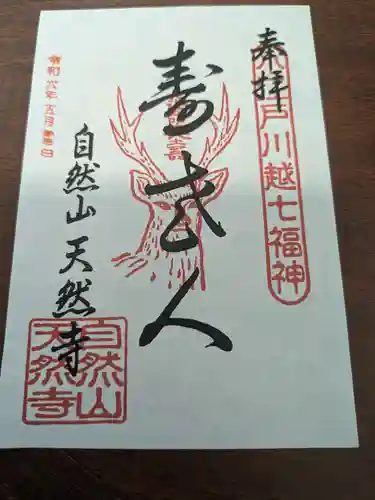 奉拝
戸川越七福神
寿老人
令和六年五月吉日
自然山天然寺
自然山
天然寺